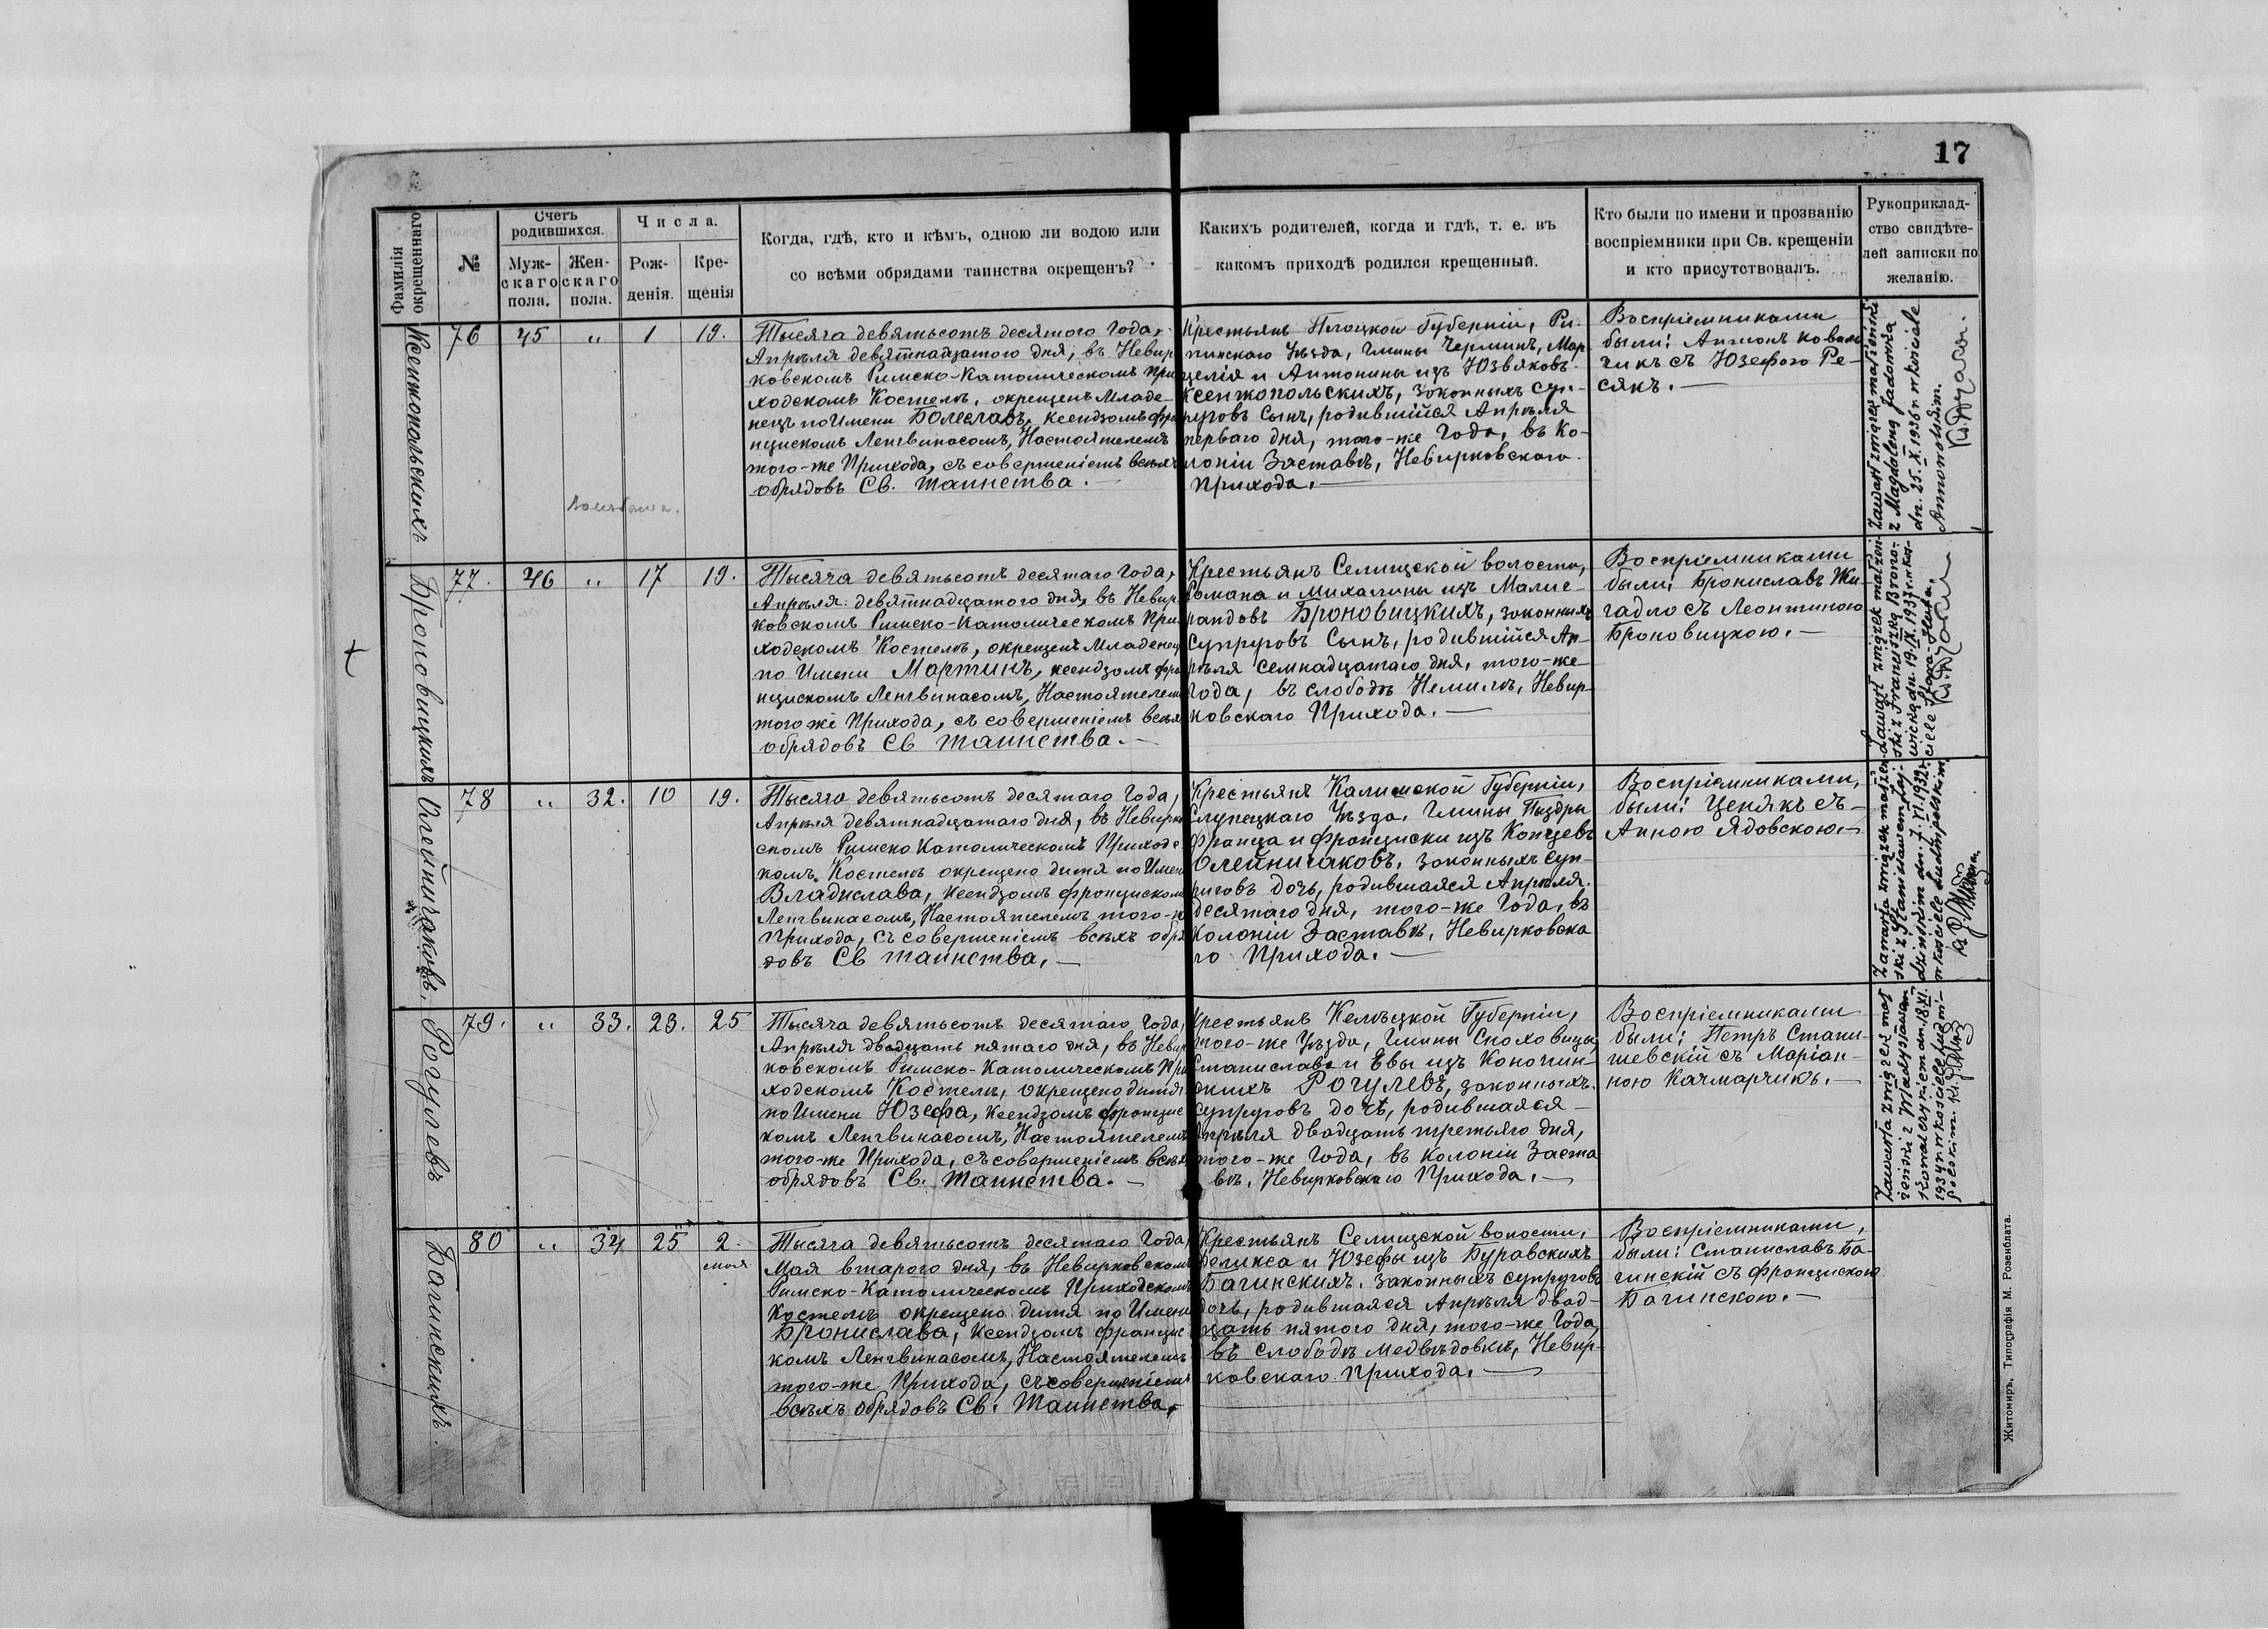 17
Фамилія окрещеннаго
№
Счетъ родившихся.
Муж-скаго пола.
Жен-скаго пола.
Числа.
Рож-денія.
Кре-щенія
Когда, гдѣ, кто и кѣмъ, одною ли водою или
со всѣми обрядами таинства окрещенъ?
Какихъ родителей, когда и гдѣ, т. е. въ
какомъ приходѣ родился крещенный.
Кто были по имени и прозванію
воспріемники при Св. крещеніи
и кто присутствовалъ.
Рукоприклад-
ство свидѣте-
лей записки по
желанію.
Ксентопольскихъ
76 45 „ 1 19.
Тысяча девятьсотъ десятого Года,
Апрѣля девятнадцатого дня, въ Невир
ковскомъ Римско-Католическомъ При
ходскомъ Костелѣ, окрещенъ Младе-
нецъ по Имени Болеславъ, Ксендзомъ Фра
нцискомъ Ленгвинасомъ, Настоятелемъ
того-же Прихода, съ совершеніемъ всѣхъ
обрядовъ Св. Таинства.—
Крестьянъ Плоцкой Губерніи, Ри-
пинскаго Уѣзда, Гмины Черминъ, Мар-
целія и Антонины изъ Юзвяковъ
Ксентопольскихъ, законныхъ суп-
руговъ Сынъ, родившійся Апрѣля
перваго дня, того-же Года, въ Ко-
лоніи Заставѣ, Невирковскаго
Прихода.—
Воспріемниками
были: Антонъ Коваль
чикъ съ Юзефого Ре-
сякъ.—
Zawarł związek małżeński
z Magdaleną Jadowską
dn. 25.X.1936 r w kościele
Antonolskim.
Броновицкихъ
77. 46 „ 17 19.
Тысяча девятьсотъ десятаго Года,
Апрѣля девятнадцатого дня, въ Невир
ковскомъ Римско-Католическомъ При
ходскомъ Костелѣ, окрещенъ Младенец
по Имени Мартинъ, Ксендзомъ Фра
нцискомъ Ленгвинасомъ, Настоятелемъ
того же Прихода, съ совершеніемъ всѣх
обрядовъ Св Таинства.—
Крестьянъ Селищской волости,
Романа и Михалины изъ Малис-
рандовъ Броновицкихъ, законныхъ
супруговъ Сынъ, родившійся Ап-
рѣля семнадцатаго дня, того-же
Года, въ слободѣ Немилѣ, Невир-
ковскаго Прихода.—
Воспріемниками
были: Брониславъ Жи-
гадло съ Леонтиного
Броновицкою.—
Zawarł związek małżeń-
ski z Franciszką Brono-
wicką dn. 19.IX.1937 r. w Koś-
ciele Stara-Huta.
Олейничаковъ.
78 „ 32. 10 19.
Тысяча девятьсотъ десятаго Года,
Апрѣля девятнадцатаго дня, въ Невирко
скомъ Римско Католическомъ Приходс
комъ Костелѣ окрещено дитя по Имени
Владислава, Ксендзомъ Францискомъ
Ленгвинасомъ, Настоятелемъ того-же
Прихода, съ совершеніемъ всѣхъ обря
довъ Св Таинства.—
Крестьянъ Калишской Губерніи,
Слупецкаго Уѣзда, Гмины Пыздры
Франца и Франциски изъ Копцевъ
Олейничаковъ, законныхъ суп-
руговъ дочь, родившаяся Апрѣля
десятаго дня, того-же Года, въ
Колоніи Заставѣ, Невирковска
го Прихода.—
Воспріемниками,
были: Ценякъ съ
Анною Ядовскою.—
Zawarła związek małżeń-
ski z Stanisławem
dn. 7.VI.1932 r.
w kościele Ludwipolskim
Рогулевъ
79. „ 33. 23. 25
Тысяча девятьсотъ десятаго Года,
Апрѣля двадцать пятаго дня, въ Невир
ковскомъ Римско-Католическомъ При
ходскомъ Костелѣ, окрещено дитя
по Имени Юзефа, Ксендзомъ Францис
комъ Ленгвинасомъ, Настоятелемъ
того-же Прихода, съ совершеніемъ всѣхъ
обрядовъ Св. Таинства.—
Крестьянъ Келѣцкой Губерніи,
того-же Уѣзда, Гмины Снохвицы,
Станислава и Евы изъ Конопин-
скихъ Рогулевъ, законныхъ
супруговъ дочь, родившаяся
Апрѣля двадцать третьяго дня,
того-же Года, въ Колоніи Заста
вѣ, Невирковскаго Прихода.—
Воспріемниками
были: Петръ Стани-
шевскій съ Маріан-
ною Качмарчикъ.—
Zawarła związek mał
żeński z Władysławem
dn. 18.XI.
193 w kościele Ludwi-
polskim.
Багинскихъ.
80 „ 34 25 2. мая
Тысяча девятьсотъ десятаго Года,
Мая втарого дня, въ Невирковскомъ
Римско-Католическомъ Приходскомъ
Костелѣ окрещено дитя по Имени
Бронислава, Ксендзомъ Францис
комъ Ленгвинасомъ, Настоятелемъ
того-же Прихода, съ совершеніемъ
всѣхъ обрядовъ Св. Таинства.
Крестьянъ Селищской волости,
Феликса и Юзефы изъ Буравскихъ
Багинскихъ, законныхъ супруговъ
дочь, родившаяся Апрѣля двад-
цать пятого дня, того-же Года,
въ слободѣ Медвѣдовкѣ, Невир-
ковскаго Прихода.—
Воспріемниками,
были: Станиславъ Ба-
гинскій съ Францискою
Багинскою.—
Житомиръ, Типографія М. Розенблата.